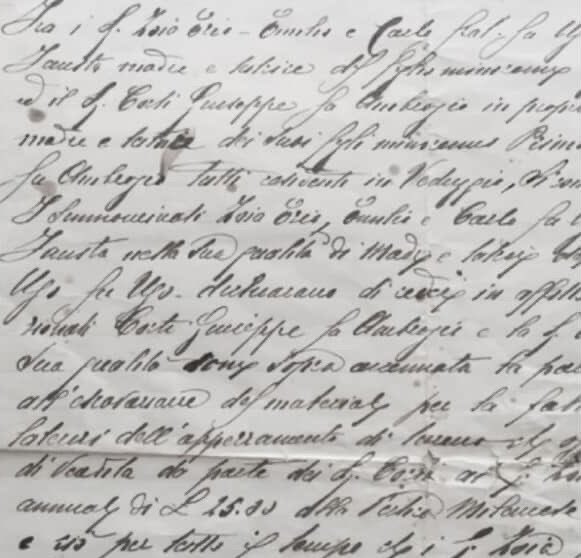 Fra i S. Zoia Ezio - Emilio e Carlo frat. fu Ugo
Fausta madre e tutrice del figlio minorenne
ed il S. Corti Giuseppe fu Ambrogio in proprio
madre e tutrice dei suoi figli minorenni Primo
fu Ambrogio tutti residenti in Veduggio, si con
I summenzionati Zoia Ezio, Emilio e Carlo fu
Fausta nella sua qualità di Madre e tutrice del
Ugo fu Ugo - dichiarano di cedere in affitto
minati Corti Giuseppe fu Ambrogio e la S.
sua qualità come sopra accennata la
all' del materiale per la
laterizi dell'appezzamento di terreno
di vendita da parte dei S. Corti ai S.
annuale di L 25.00 alla Fabrica
e ciò per tutto il tempo che i S. Zoia